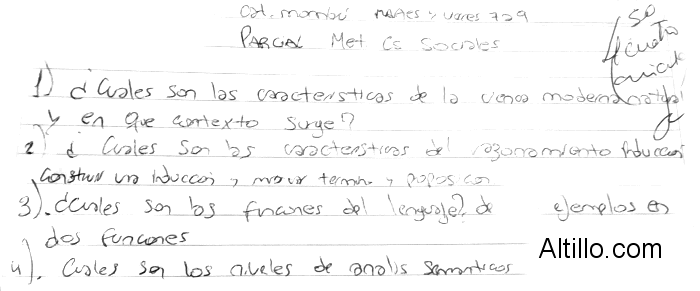 Cat. mombrú martes y viernes 7 a 9
PARCIAL Met Cs Sociales
50
4 cuatro
1) ¿Cuales son las caracteristicas de la ciencia moderna natural
y en que contexto surge?
2) ¿Cuales son las caracteristicas del razonamiento Inducción
Construir una Induccion y termino y
3). ¿Cuales son las funciones del lenguaje? de ejemplos en
dos funciones
4). Cuales son los niveles de analis semanticos
Altillo.com